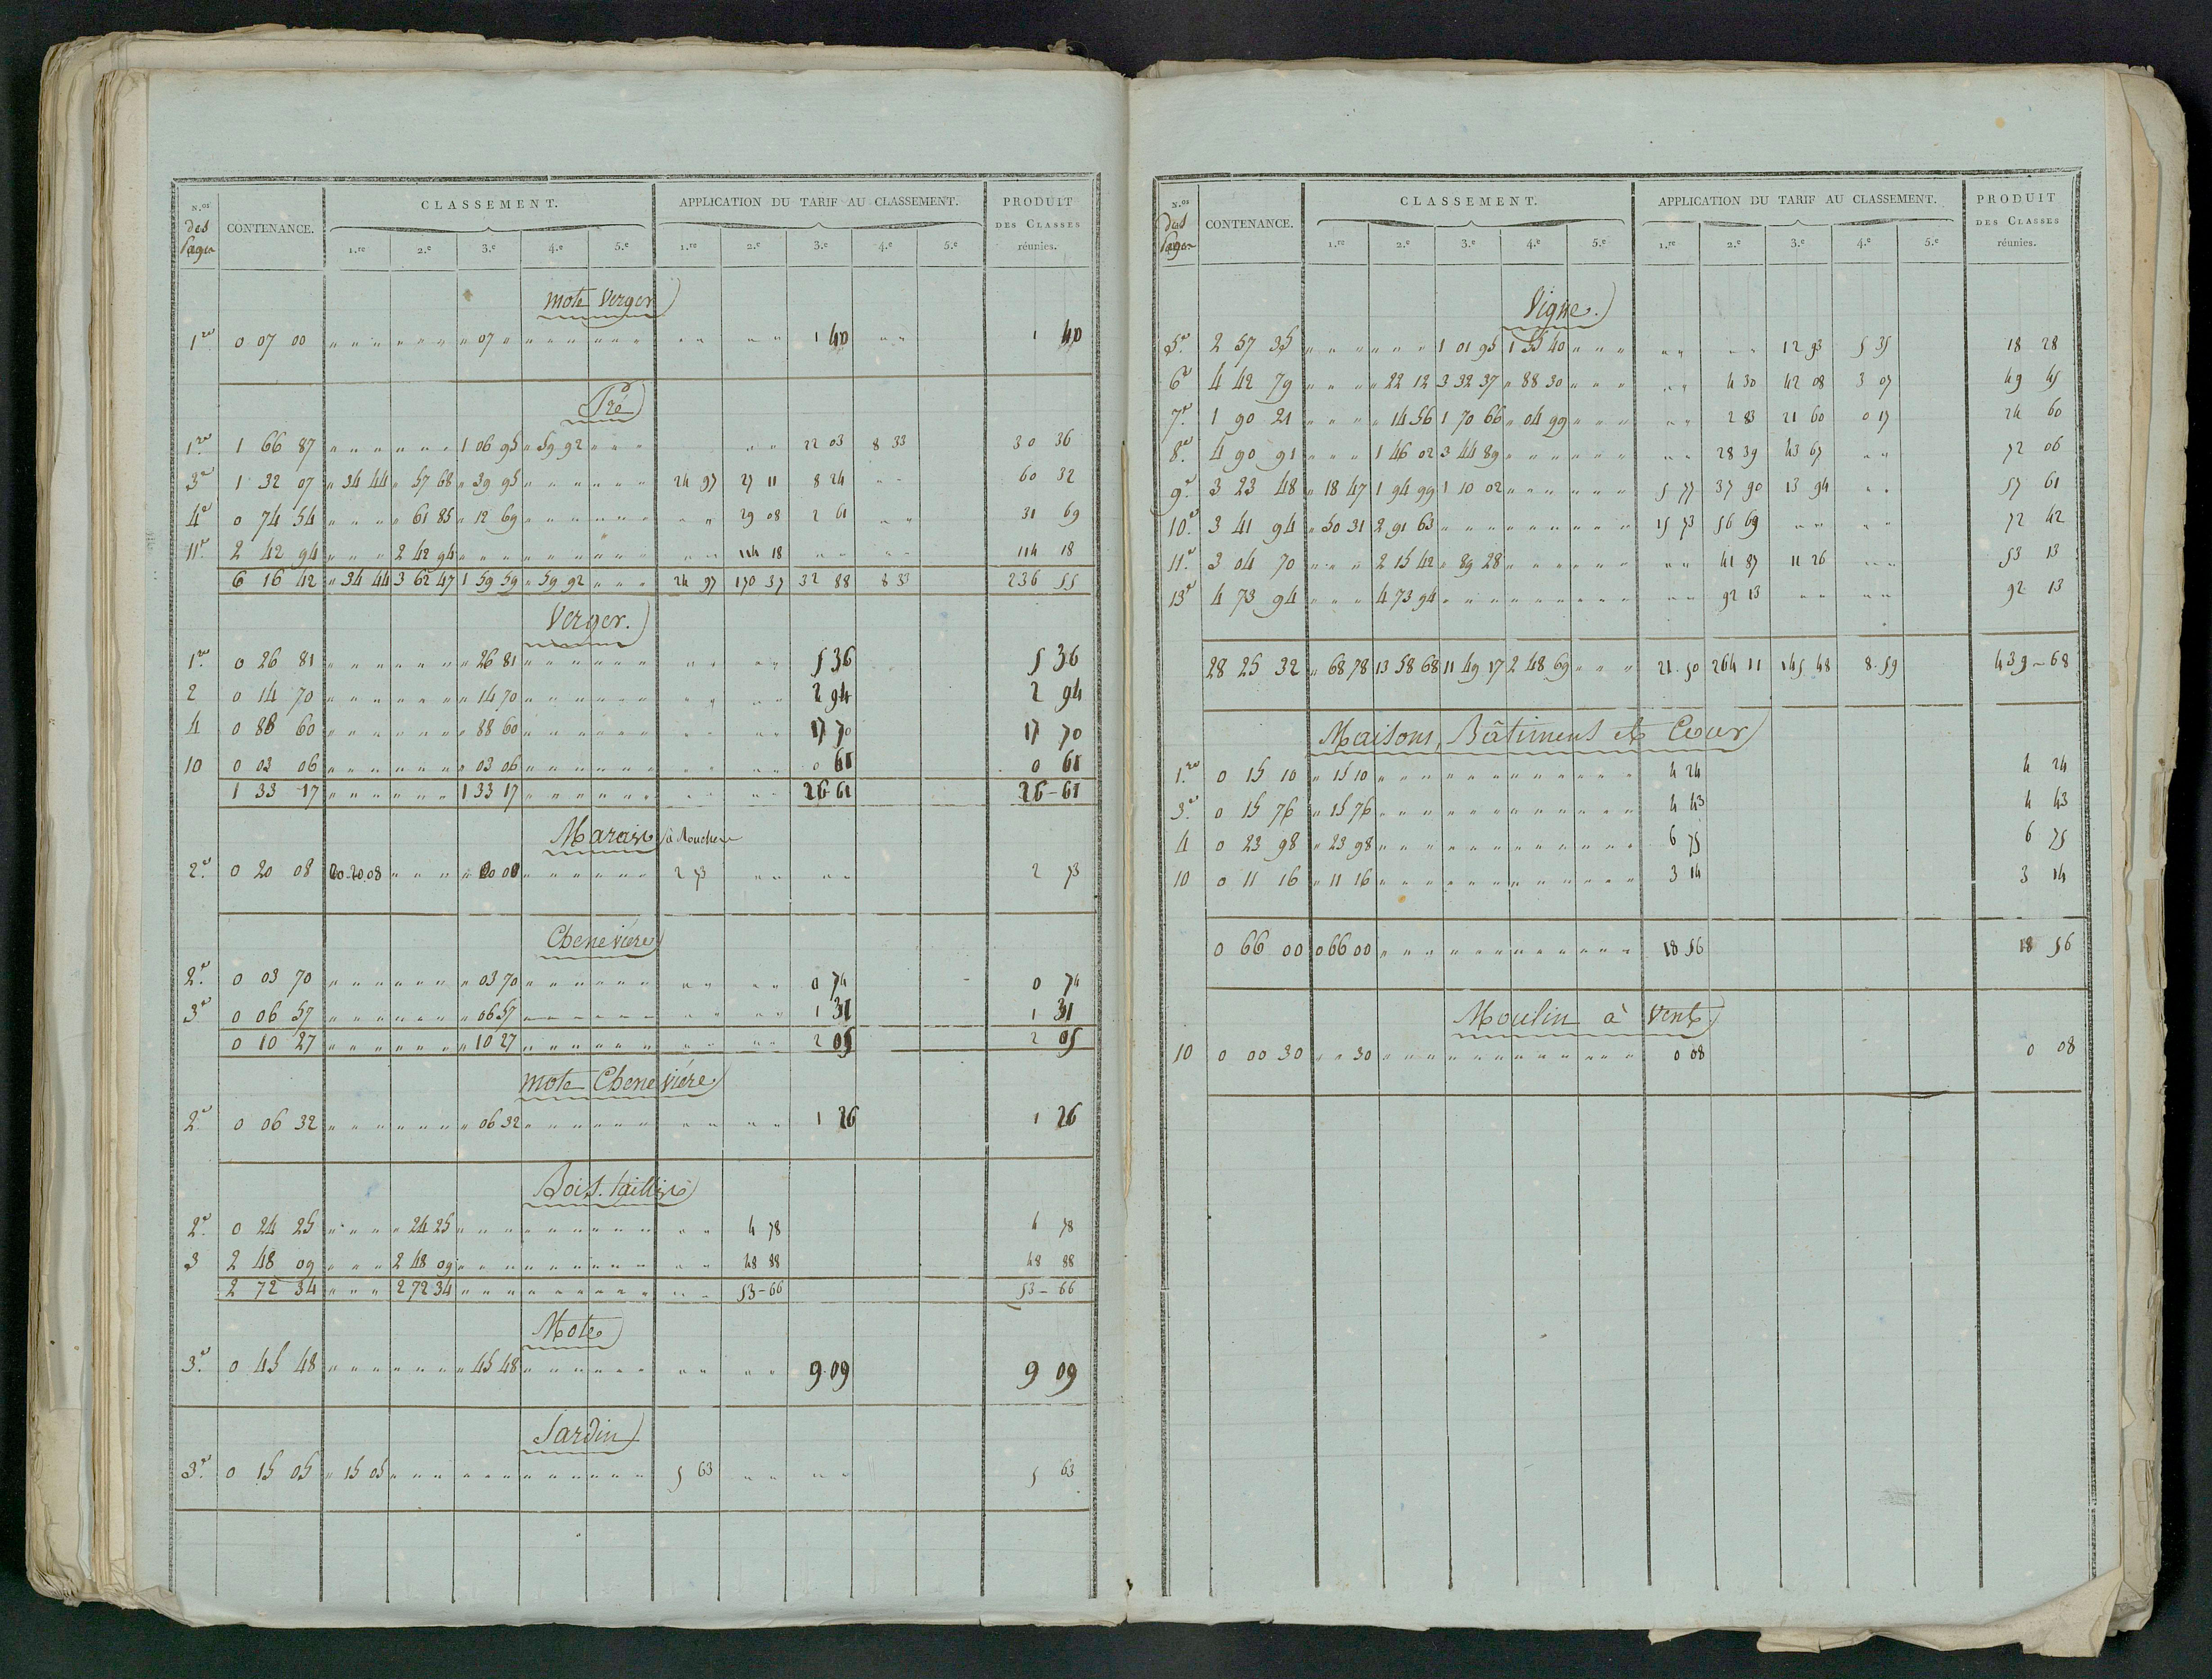 N.os des Pages CONTENANCE. CLASSEMENT. APPLICATION DU TARIF AU CLASSEMENT. PRODUIT DES CLASSES réunies.
1.re 2.e 3.e 4.e 5.e 1.re 2.e 3.e 4.e 5.e
mote Verger
1re 0 07 00 " 07 " 1 40 1 40
Pré
1re 1 66 87 1 06 95 " 59 92 22 03 8 33 30 36
3e 1 32 07 " 34 44 " 57 68 " 39 95 24 97 27 11 8 24 60 32
4e 0 74 54 " 61 85 " 12 69 29 08 2 61 31 69
11e 2 42 94 2 42 94 114 18 114 18
6 16 42 " 34 44 3 62 47 1 59 59 " 59 92 24 97 170 37 32 88 8 33 236 55
Verger.
1re 0 26 81 " 26 81 5 36 5 36
2 0 14 70 " 14 70 2 94 2 94
4 0 88 60 " 88 60 17 70 17 70
10 0 03 06 " 03 06 0 61 0 61
1 33 17 1 33 17 26 61 26-61
Marais à Rouches
2e 0 20 08 20 08 2 73 2 73
Chenevière
2e 0 03 70 " 03 70 0 74 0 74
3e 0 06 57 " 06 57 1 31 1 31
0 10 27 " 10 27 2 05 2 05
mote Chenevière
2e 0 06 32 " 06 32 1 26 1 26
Bois taillis
2e 0 24 25 " 24 25 4 78 4 78
3 2 48 09 2 48 09 48 88 48 88
2 72 34 2 72 34 53-66 53-66
Mote
3e 0 45 48 " 45 48 9 09 9 09
Jardin
3e 0 15 05 " 15 05 5 63 5 63
N.os des Pages CONTENANCE. CLASSEMENT. APPLICATION DU TARIF AU CLASSEMENT. PRODUIT DES CLASSES réunies.
1.re 2.e 3.e 4.e 5.e 1.re 2.e 3.e 4.e 5.e
Vigne.
5e 2 57 35 1 01 95 1 55 40 12 93 5 35 18 28
6e 4 42 79 " 22 12 3 32 37 " 88 30 4 30 42 08 3 07 49 45
7e 1 90 21 " 14 56 1 70 66 " 04 99 2 83 21 60 0 17 24 60
8e 4 90 91 1 46 02 3 44 89 28 39 43 67 72 06
9e 3 23 48 " 18 47 1 94 99 1 10 02 5 77 37 90 13 94 57 61
10e 3 41 94 " 50 31 2 91 63 15 73 56 69 72 42
11e 3 04 70 2 15 42 " 89 28 41 87 11 26 53 13
13e 4 73 94 4 73 94 92 13 92 13
28 25 32 " 68 78 13 58 68 11 49 17 2 48 69 21-50 264 11 145 48 8-59 439-68
Maisons, Bâtiments et Cour
1re 0 15 10 " 15 10 4 24 4 24
3e 0 15 76 " 15 76 4 43 4 43
4 0 23 98 " 23 98 6 75 6 75
10 0 11 16 " 11 16 3 14 3 14
0 66 00 0 66 00 18 56 18 56
Moulin à Vent
10 0 00 30 " " 30 0 08 0 08